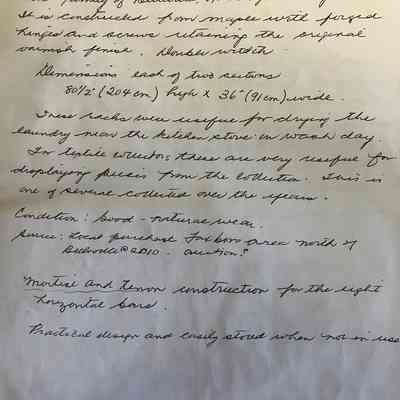 family of
It is constructed from maple with forged
hinges and screws retaining the original
varnish finish. Double width
Dimensions each of two sections
80½" (204 cm) high x 36" (91 cm) wide.
These racks were useful for drying the
laundry near the kitchen stove on wash day.
For textile collectors these are very useful for
displaying pieces from the collection. This is
one of several collected over the years.
Condition: Good - natural wear.
Source: Local purchase Foxboro area north of
Belleville @ 2010. auction?
Mortise and tenon construction for the eight
horizontal bars.
Practical design and easily stored when not in use